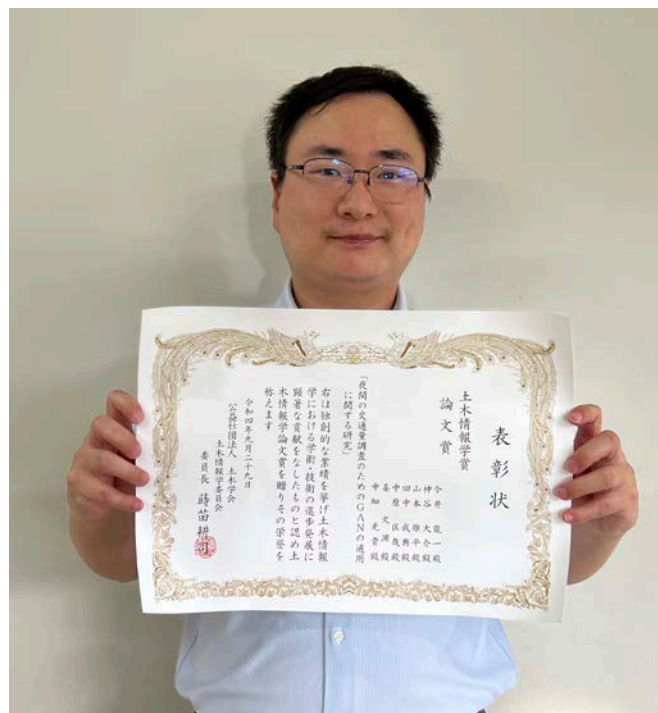 表彰状
土木情報学賞
論文賞
今井 龍一殿
神谷 大介殿
山本 雄平殿
田中 成典殿
中原 匡哉殿
姜 文渊殿
中畑 光貴殿
「夜間の交通量調査のためのGANの適用
に関する研究」
右は独創的な業績を挙げ土木情報
学における学術・技術の進歩発展に
顕著な貢献をなしたものと認め土
木情報学論文賞を贈りその栄誉を
称えます
令和四年九月二十九日
公益社団法人 土木学会
土木情報学委員会
委員長 蒔苗耕司